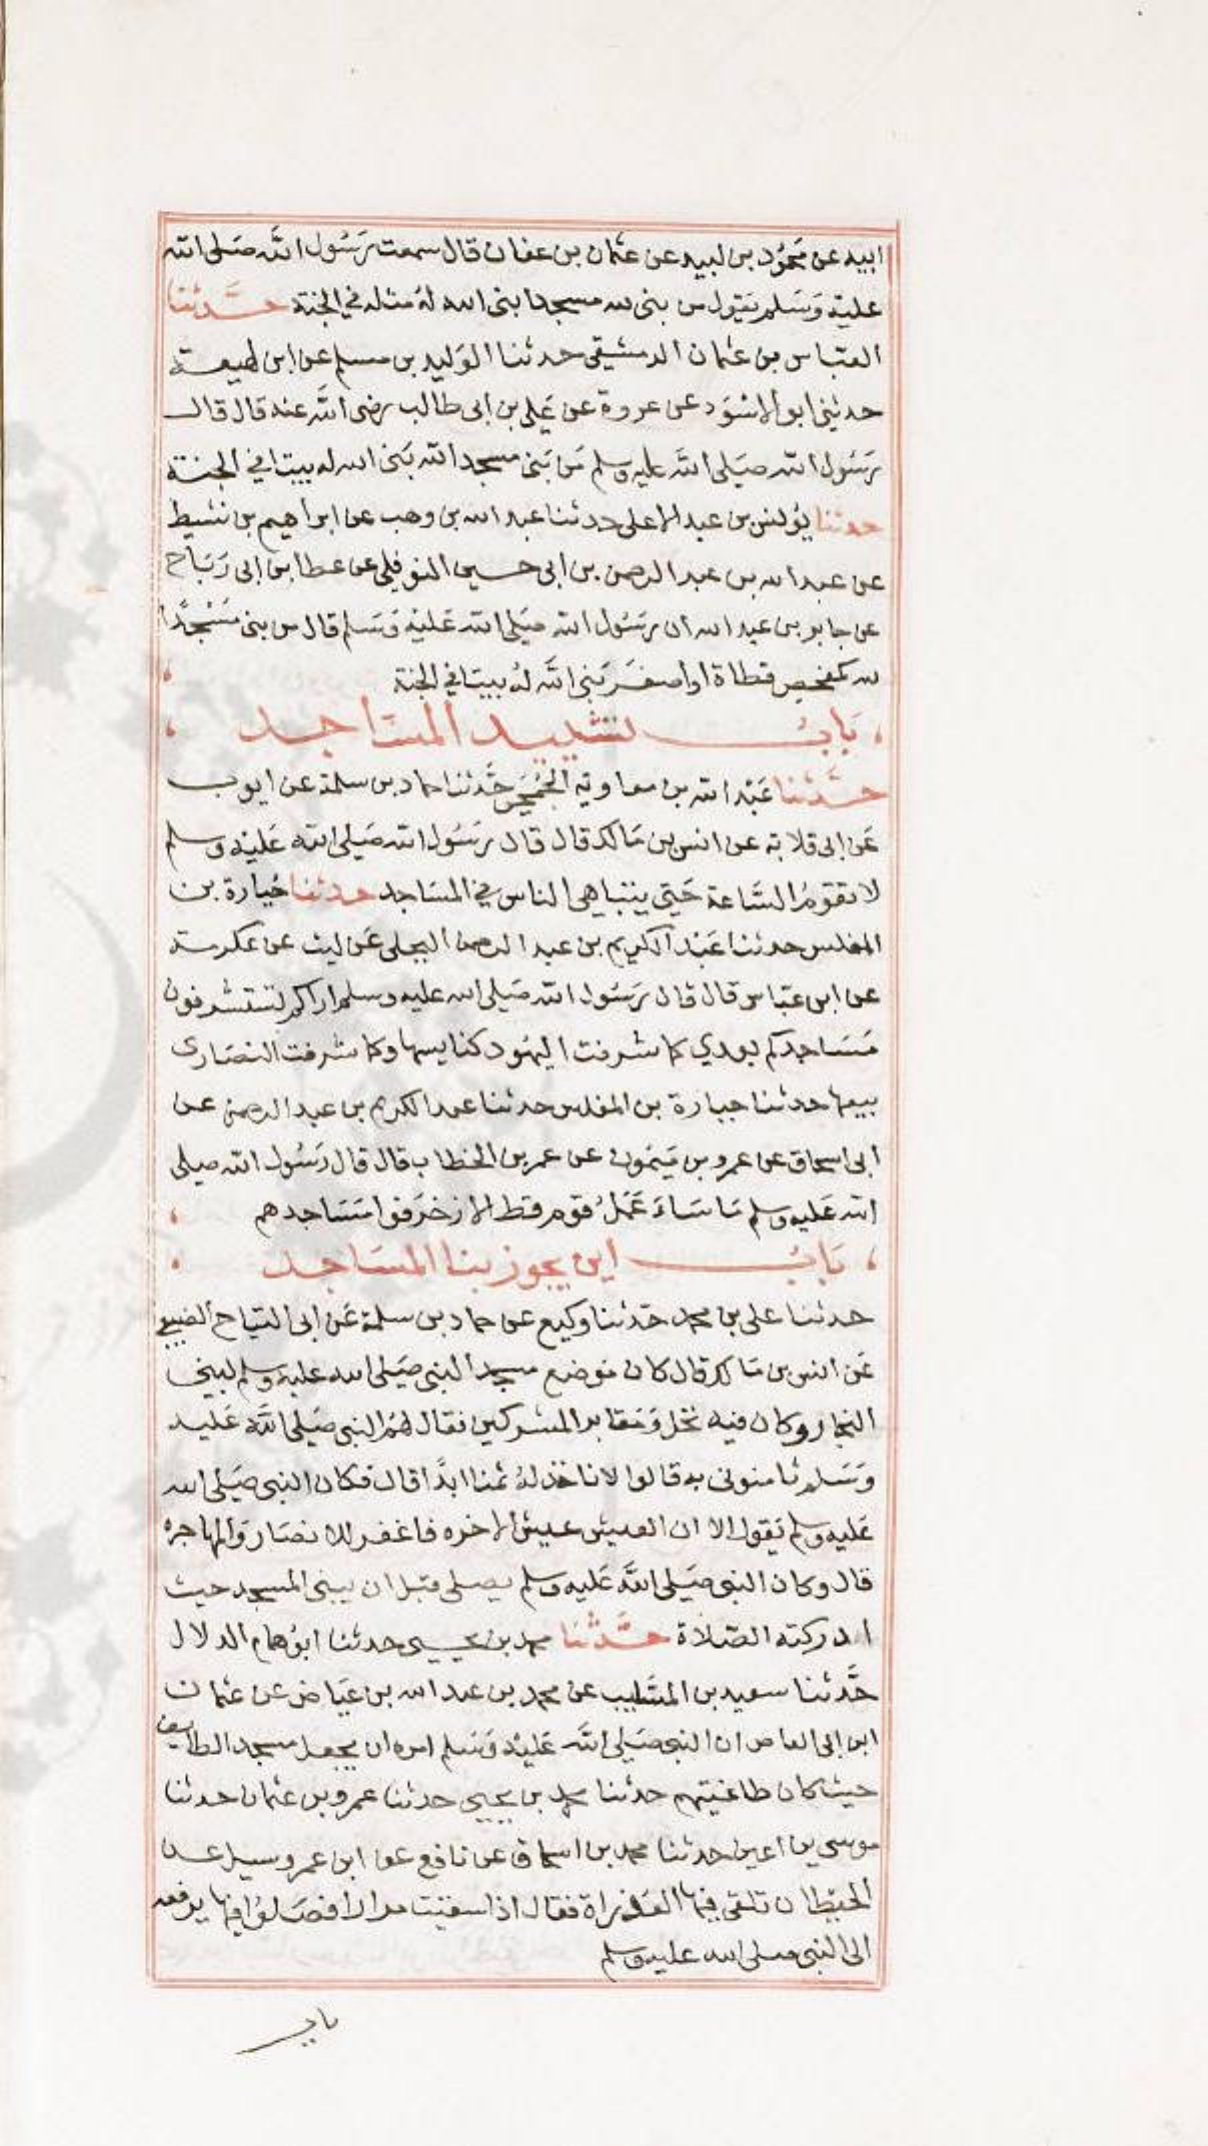 ابيه عن محمود بن لبيد عن عثمان بن عفان قال سمعت رسول الله صلى الله
عليه وسلم يقول من بنى لله مسجدا بنى الله له مثله في الجنة حدثنا
العباس بن عثمان الدمشقي حدثنا الوليد بن مسلم عن ابن لهيعة
حدثني ابو الاسود عن عروة عن علي بن ابى طالب رضى الله عنه قال قال
رسول الله صلى الله عليه وسلم من بنى مسجد الله بنى الله له بيتا في الجنة
حدثنا يونس بن عبد الاعلى حدثنا عبد الله بن وهب عن ابراهيم بن نشيط
عن عبد الله بن عبد الرحمن بن ابى حسين النوفلي عن عطا بن ابى رباح
عن جابر بن عبد الله ان رسول الله صلى الله عليه وسلم قال من بنى مسجدا
لله كمفحص قطاة او اصغر بنى الله له بيتا في الجنة
باب تشييد المساجد
حدثنا عبد الله بن معاوية الجمحي حدثنا حماد بن سلمة عن ايوب
عن ابى قلابة عن انس بن مالك قال قال رسول الله صلى الله عليه وسلم
لا تقوم الساعة حتى يتباهى الناس في المساجد حدثنا جبارة بن
المغلس حدثنا عبد الكريم بن عبد الرحمن البجلى عن ليث عن عكرمة
عن ابن عباس قال قال رسول الله صلى الله عليه وسلم اراكم لتستشرفون
مساجدكم بعدي كما شرفت اليهود كنايسها وكما شرفت النصارى
بيعها حدثنا جبارة بن المغلس حدثنا عبد الكريم بن عبد الرحمن عن
ابى اسحاق عن عمرو بن ميمون عن عمر بن الخطاب قال قال رسول الله صلى
الله عليه وسلم ما ساء عمل قوم قط الا زخرفوا مساجدهم
باب اين يجوز بنا المساجد
حدثنا على بن محمد حدثنا وكيع عن حماد بن سلمة عن ابى التياح الضبعي
عن انس بن مالك قال كان موضع مسجد النبى صلى الله عليه وسلم لبني
النجار وكان فيه نخل ومقابر المشركين فقال لهم النبى صلى الله عليه
وسلم ثامنونى به قالوا لا ناخذ له ثمنا ابدا قال فكان النبى صلى الله
عليه وسلم يقول الا ان العيش عيش الاخره فاغفر للانصار والمهاجره
قال وكان النبى صلى الله عليه وسلم يصلى قبل ان يبنى المسجد حيث
ادركته الصلاة حدثنا محمد بن يحيى حدثنا ابو همام الدلال
حدثنا سعيد بن المسيب عن محمد بن عبد الله بن عياض عن عثمان
ابن ابى العاص ان النبى صلى الله عليه وسلم امره ان يجعل مسجد الطايف
حيث كان طاغيتهم حدثنا محمد بن يحيى حدثنا عمرو بن عثمان حدثنا
موسى بن اعين حدثنا محمد بن اسحاق عن نافع عن ابن عمر وسيل عن
الحيطان تلقى فيها العذراة فقال اذا سقيت مرارا فصلوا فيها يرفعه
الى النبى صلى الله عليه وسلم
باب